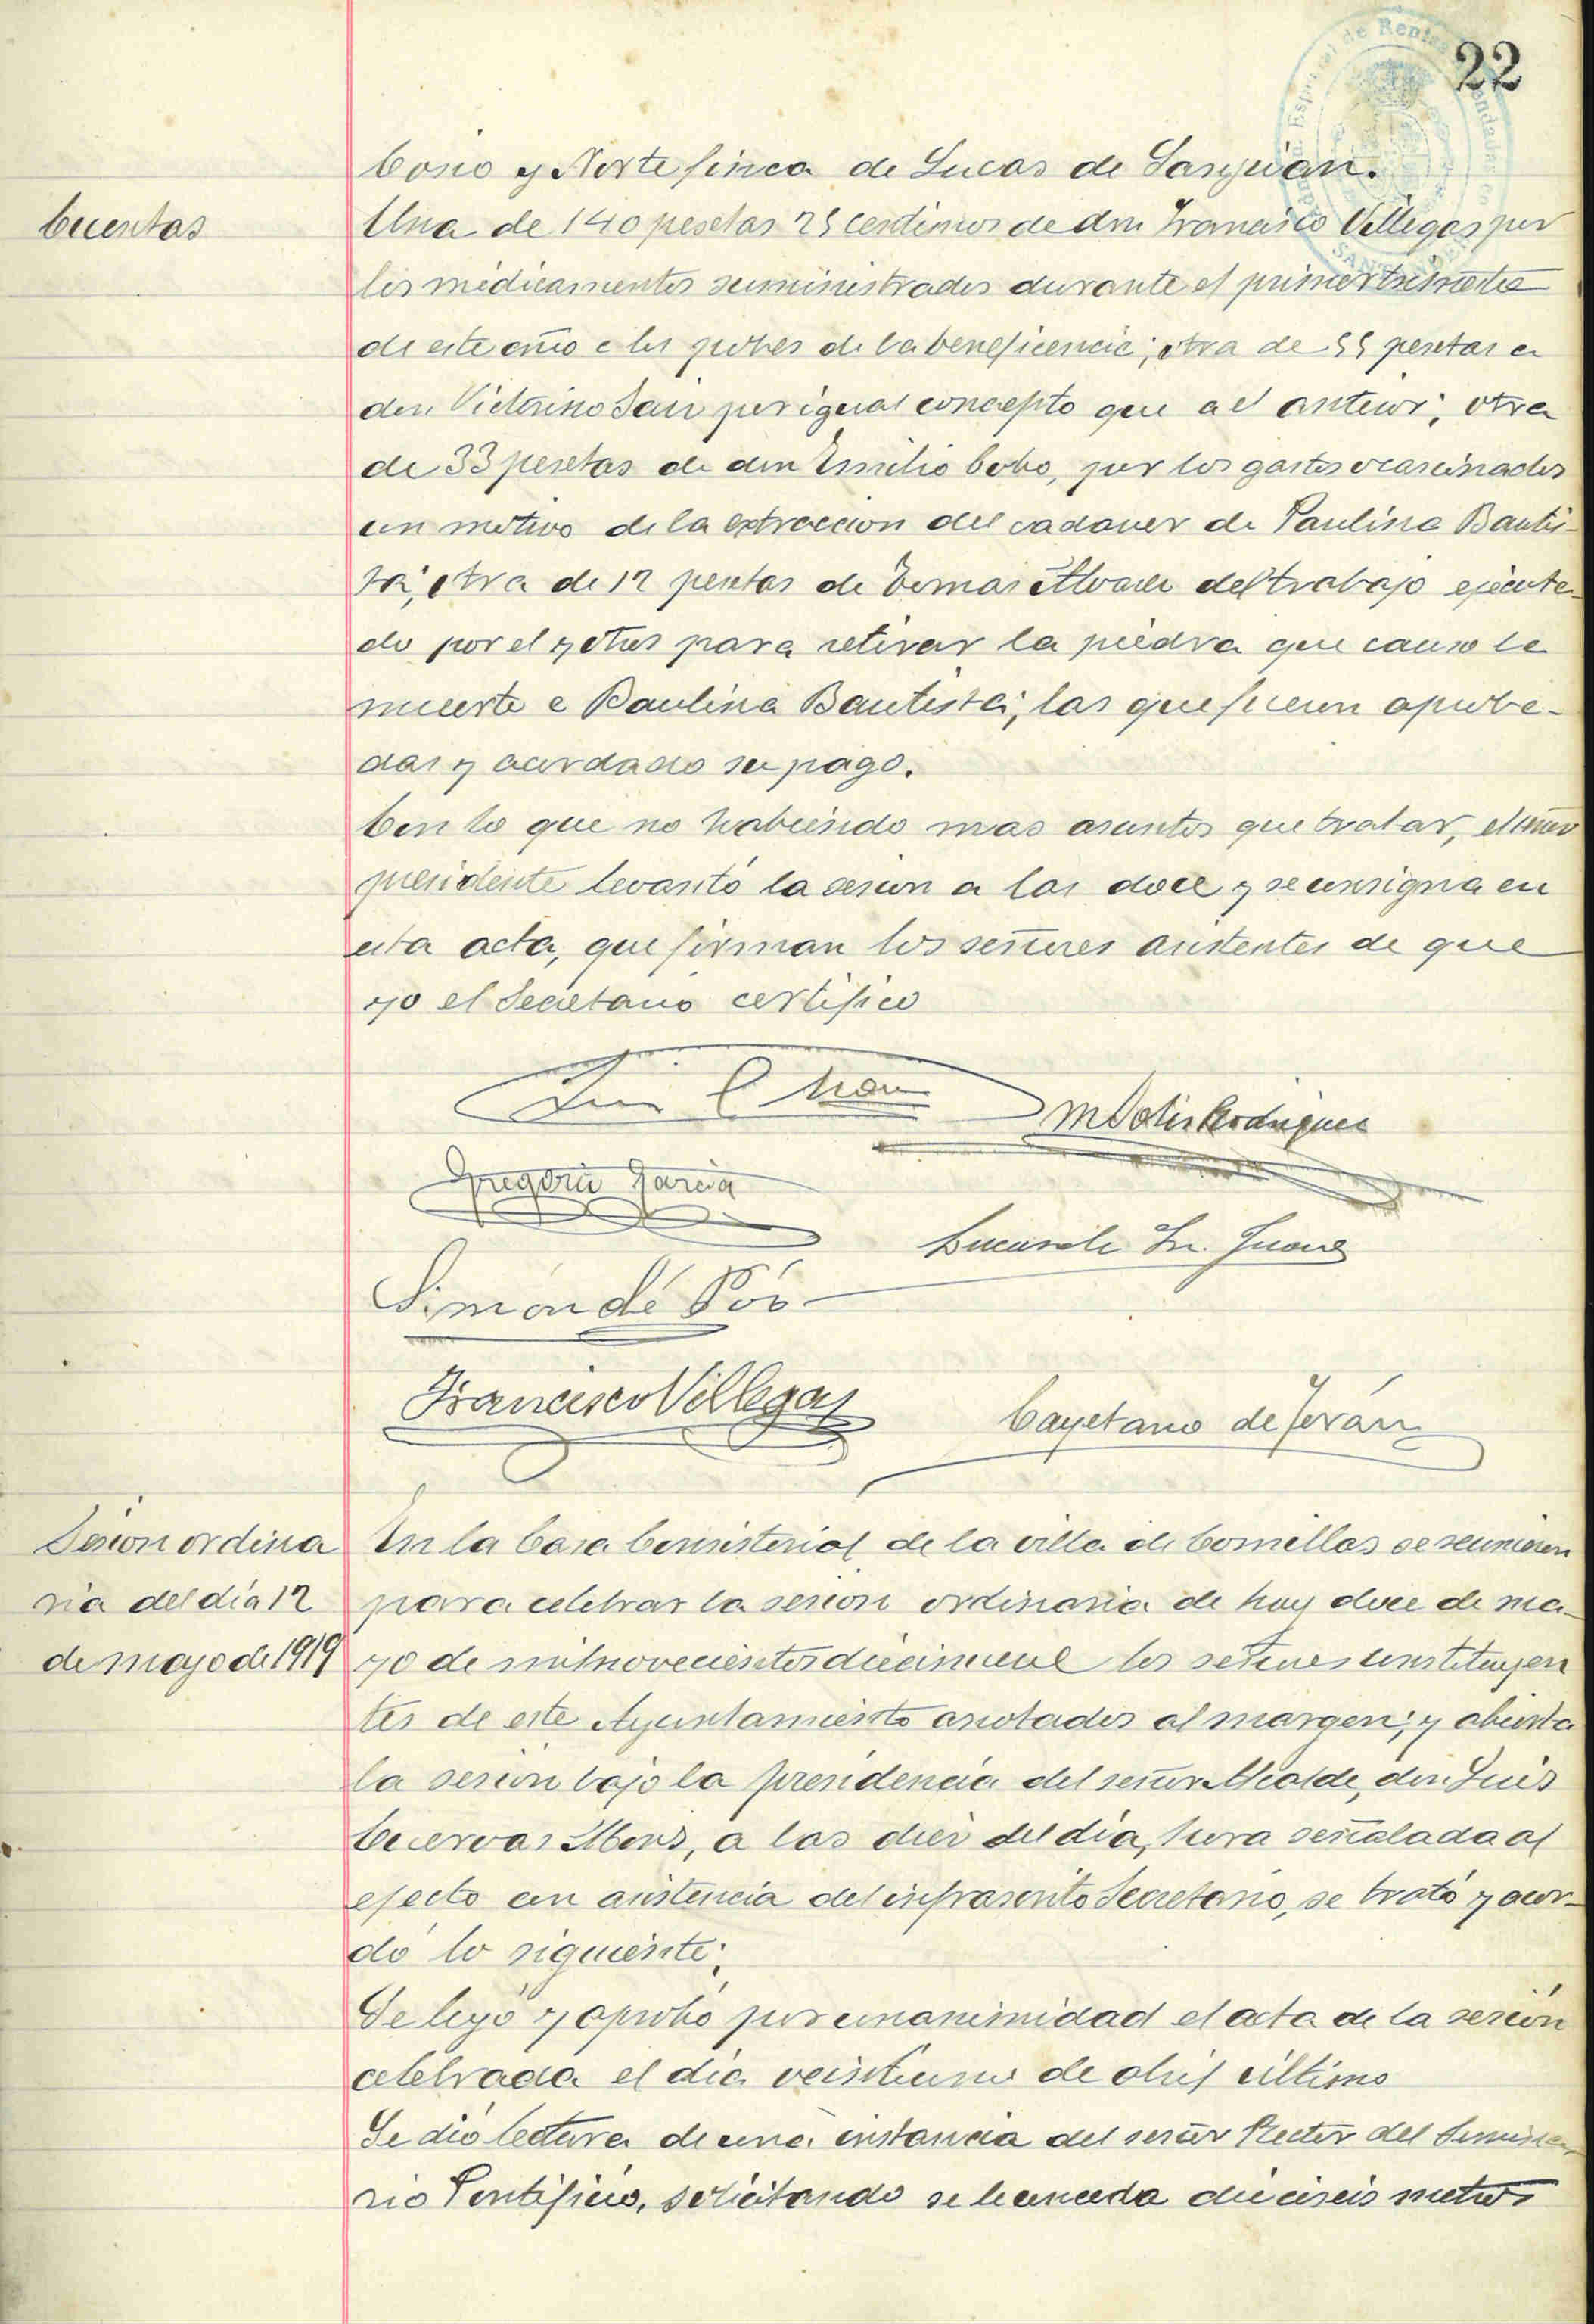 22
Cono y Norte finca de Lucas de Sanjuan.
Cuentas
Una de 140 pesetas 25 centimos de don Francisco Villegas por
los medicamentos suministrados durante el primer trimestre
de este año a los pobres de la beneficencia; otra de 55 pesetas a
don Victorino San por igual concepto que a el anteior; otra
de 33 pesetas de don Emilio Cobo, por los gastos ocasionados
con motivo de la extraccion del cadaver de Paulina Bautis-
ta; otra de 12 pesetas de Tomas del trabajo ejecuta-
do por el y otros para retirar la piedra que causo la
muerte a Paulina Bautista; las que fueron aproba-
das y acordado su pago.
Con lo que no habiendo mas asuntos que tratar, el señor
presidente levantó la sesion a las doce y se consigna en
esta acta, que firman los señores asistentes de que
yo el Secretario certifico
M Solis Rodriguez
Gregorio Garcia
Lucas de Sn. Juan
Simón de Pós
Francisco Villegas
Cayetano de Terán
Sesion ordina
ria del día 12
de mayo de 1919
En la Casa Consistorial de la villa de Comillas se reunieron
para celebrar la sesion ordinaria de hoy doce de ma-
yo de mil novecientos diecinueve los señores constituyen
tes de este Ayuntamiento anotados al margen; y abierta
la sesion bajo la presidencia del señor Alcalde, don Luis
Cuervas Mons, a las diez del día, hora señalada al
efecto con asistencia del infrascrito Secretario, se trató y acor-
dó lo siguiente:
Se leyó y aprobó por unanimidad el acta de la sesion
celebrada el día veintiuno de abril último
Se dió lectura de una instancia del señor Rector del Semina-
rio Pontificio, solicitando se le conceda dieciseis metros